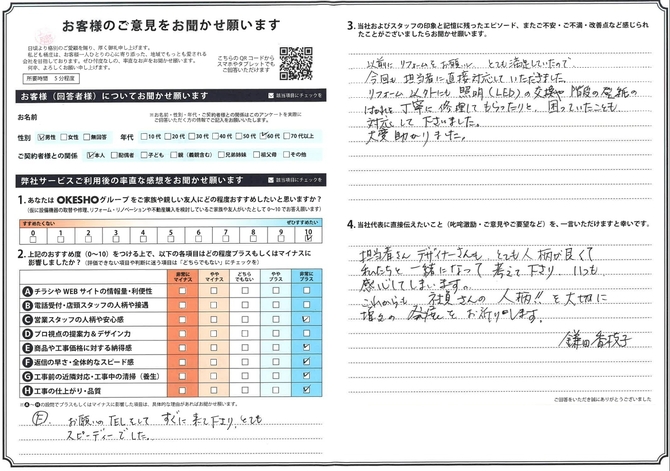 お客様のご意見をお聞かせ願います
日頃より格別のご愛顧を賜り、厚く御礼申し上げます。
何卒、よろしくお願い申し上げます。
所要時間 5分程度
こちらのQRコードから
スマホやタブレットでも
ご回答いただけます
お客様（回答者様）についてお聞かせ願います
該当項目にチェックを
お名前
性別 男性 女性 無回答 年代 10代 20代 30代 40代 50代 60代 70代以上
ご契約者様との関係 本人 配偶者 子ども 親（義親含む） 兄弟姉妹 祖父母 その他
弊社サービスご利用後の率直な感想をお聞かせ願います
該当項目にチェックを
1. あなたは OKESHOグループ をご家族や親しい友人にどの程度おすすめしたいと思いますか？
（仮に設備機器の取替や修理、リフォーム・リノベーションや不動産購入を検討しているご家族や友人がいたとして0〜10でお答え願います）
すすめたくない ぜひすすめたい
0 1 2 3 4 5 6 7 8 9 10
2. 上記のおすすめ度（0〜10）をつける上で、以下の各項目はどの程度プラスもしくはマイナスに
影響しましたか？（評価できない項目や判断に迷う項目は「どちらでもない」にチェック）
非常に マイナス やや マイナス どちら でもない やや プラス 非常に プラス
A チラシやWEBサイトの情報量・利便性
B 電話受付・店頭スタッフの人柄や接遇
C 営業スタッフの人柄や安心感
D プロ視点の提案力＆デザイン力
E 商品や工事価格に対する納得感
F 返信の早さ・全体的なスピード感
G 工事前の近隣対応・工事中の清掃（養生）
H 工事の仕上がり・品質
F. お願いのTELをして すぐに来て下さり、とても
スピーディーでした。
3. 当社およびスタッフの印象と記憶に残ったエピソード、またご不安・ご不満・改善点など感じられ
たことがございましたらお聞かせ願います。
以前にリフォームをお願いし、とても満足していたので、
今回も担当者に直接対応していただきました。
リフォーム以外にも照明（LED）の交換や階段の壁紙の
はがれを丁寧に修理してもらったりと、困っていたことも
対応して下さいました。
大変助かりました。
4. 当社代表に直接伝えたいこと（叱咤激励・ご意見やご要望など）を、一言いただけますと幸いです。
担当者さん デザイナーさんも とても人柄が良くて
私たちと一緒になって考えて下さり、いつも
感心してしまいます。
これからも 社員さんの人柄!!を大切に
増々の発展をお祈りします。
ご回答をいただき誠にありがとうございました